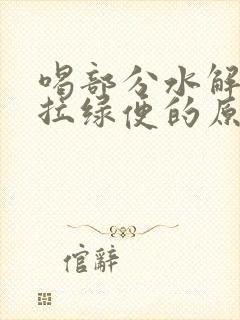 喝部分水解
拉绿便的原
倌辭